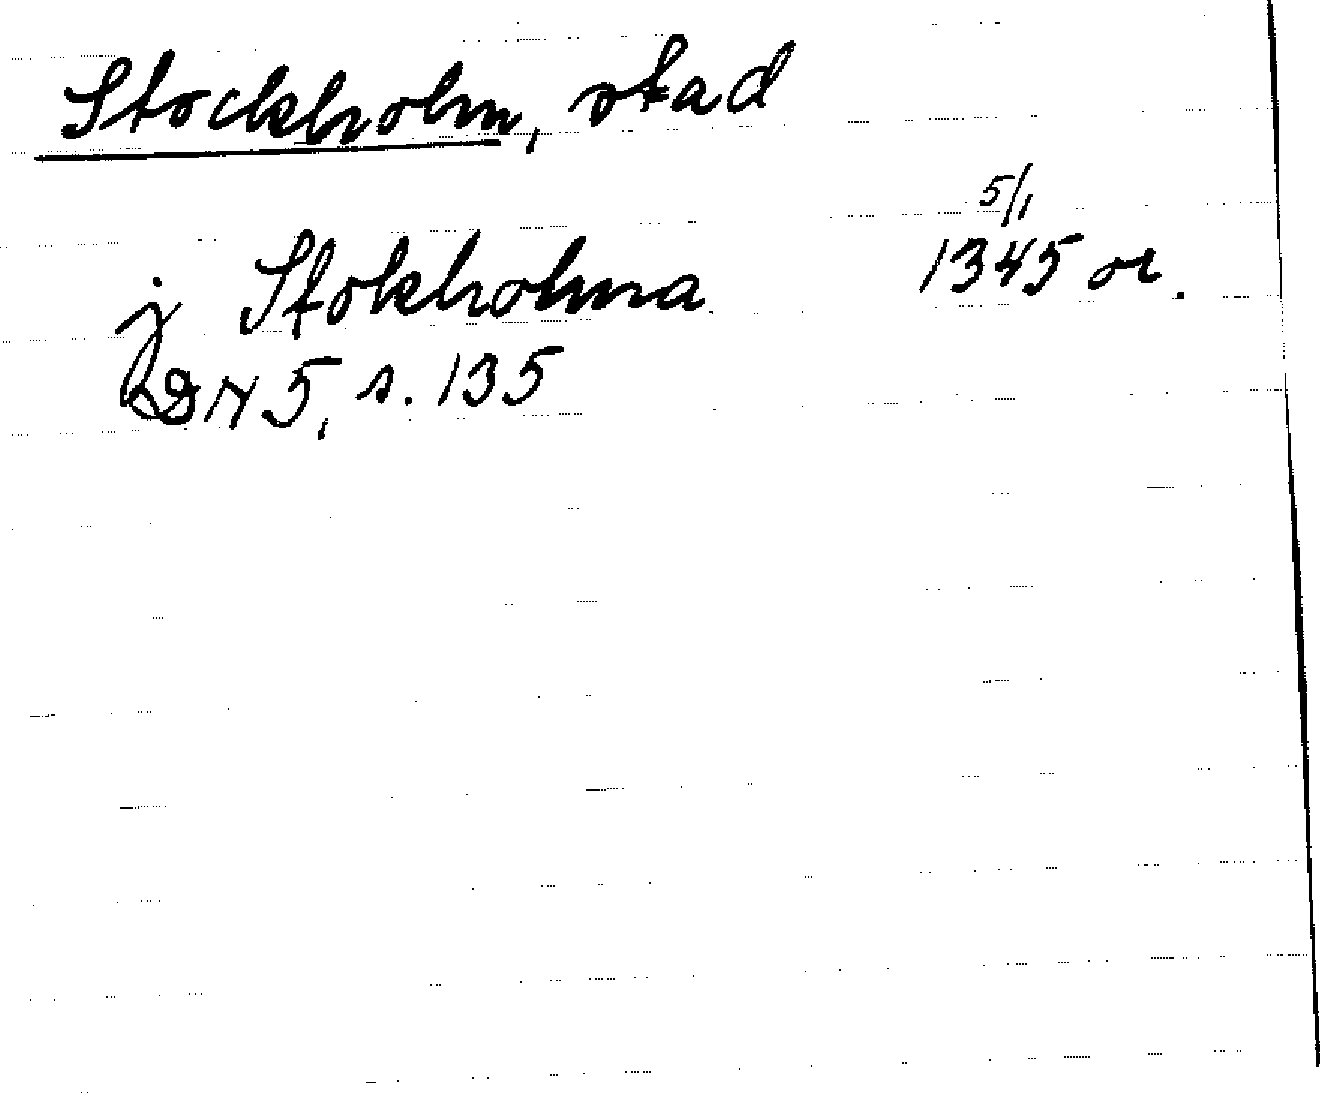 Stockholm, stad
5/1
j Stokholma 1345 or.
DN 5, s. 135